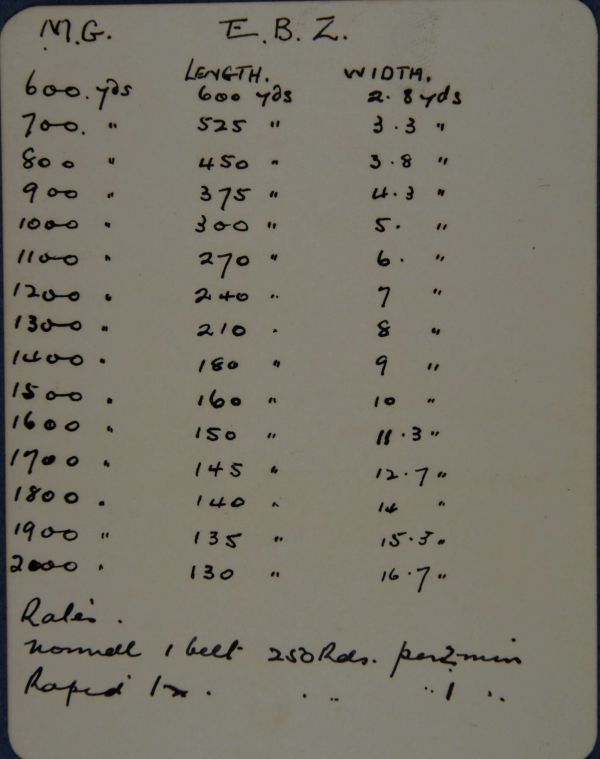 M.G. E.B.Z.
LENGTH. WIDTH.
600. yds 600 yds 2.8 yds
700. " 525 " 3.3 "
800 " 450 " 3.8 "
900 " 375 " 4.3 "
1000 " 300 " 5. "
1100 " 270 " 6. "
1200 " 240 " 7 "
1300 " 210 " 8 "
1400 " 180 " 9 "
1500 " 160 " 10 "
1600 " 150 " 11.3 "
1700 " 145 " 12.7 "
1800 " 140 " 14 "
1900 " 135 " 15.3 "
2000 " 130 " 16.7 "
Rates.
normall 1 belt 250 Rds. per 2 min
Rapid 1 " . " " 1 "